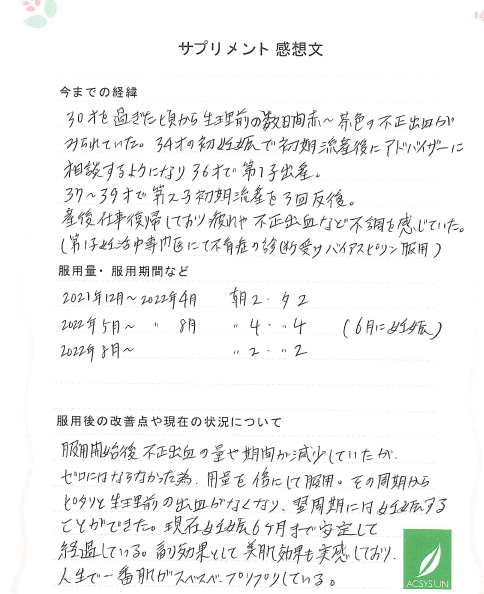 サプリメント 感想文
今までの経緯
30才を過ぎた頃から生理前の数日間赤〜茶色の不正出血が
みられていた。34才の初妊娠で初期流産後にアドバイザーに
相談するようになり36才で第1子出産。
37〜39才で第2子初期流産を3回反復。
産後仕事復帰しており疲れや不正出血など不調を感じていた。
(第1子妊活中専門医にて不育症の診断受けバイアスピリン服用)
服用量・服用期間など
2021年12月〜2022年4月 朝2・夕2
2022年5月〜 〃 8月 〃4・〃4 (6月に妊娠)
2022年8月〜 〃2・〃2
服用後の改善点や現在の状況について
服用開始後 不正出血の量や期間が減少していたが、
ゼロにはならなかった為、用量を倍にして服用。その周期から
ピタリと生理前の出血がなくなり、翌周期には妊娠する
ことができた。現在妊娠6ケ月まで安定して
経過している。副効果として美肌効果も実感しており、
人生で一番肌がスベスベ、プリプリしている。
ACSYSUN